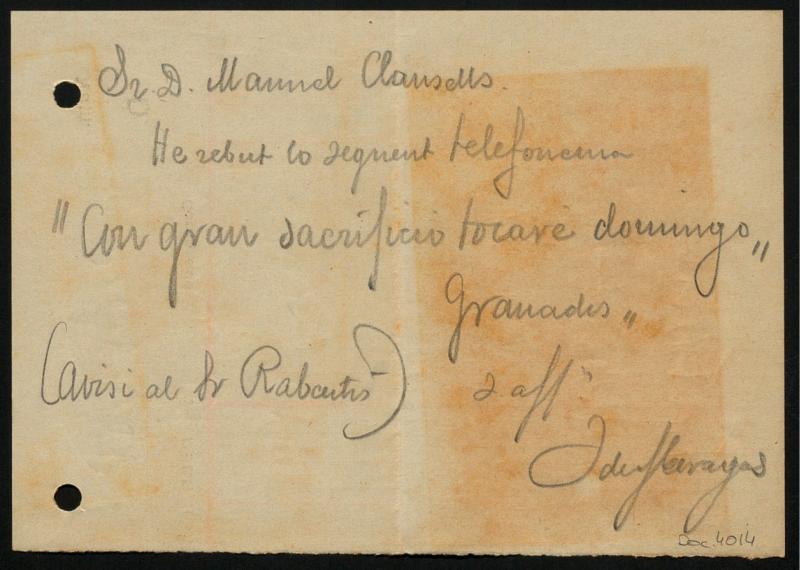 Sr D. Manuel Clausells.
He rebut lo seguent telefonema
"Con gran sacrificio tocaré domingo„
Granados„
(avisi al Sr Rabentós)
s aff
J de
Doc. 4014